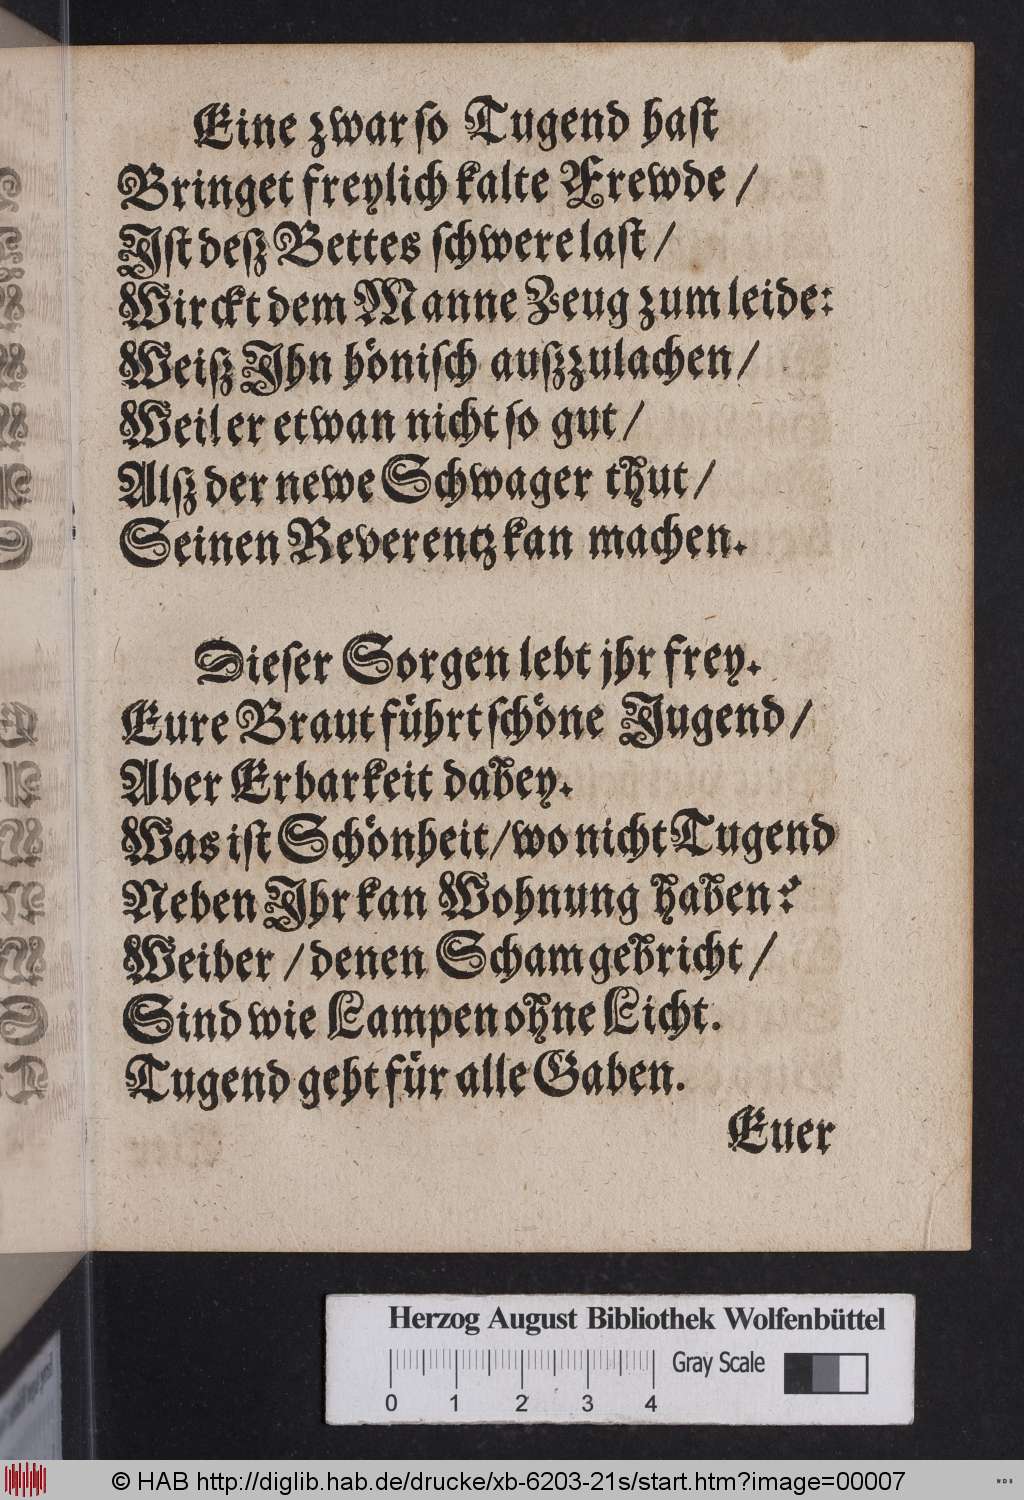 Eine zwar so Tugend hast
Bringet freylich kalte Frewde /
Ist deß Bettes schwere last /
Wirckt dem Manne Zeug zum leide:
Weiß Ihn hönisch außzulachen /
Weil er etwan nicht so gut /
Alß der newe Schwager thut /
Seinen Reverentz kan machen.
Dieser Sorgen lebt jhr frey.
Eure Braut führt schöne Jugend /
Aber Erbarkeit dabey.
Was ist Schönheit / wo nicht Tugend
Neben Ihr kan Wohnung haben?
Weiber / denen Scham gebricht /
Sind wie Lampen ohne Licht.
Tugend geht für alle Gaben.
Euer
Herzog August Bibliothek Wolfenbüttel
Gray Scale
0 1 2 3 4
© HAB http://diglib.hab.de/drucke/xb-6203-21s/start.htm?image=00007